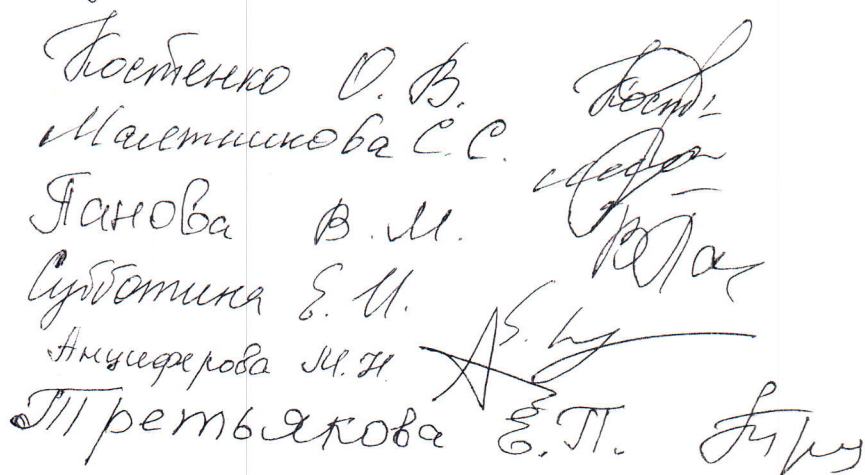 Костенко О. В.
Малетникова С. С.
Панова В. М.
Субботина Е. И.
Анциферова М. Н.
Третьякова Е. П.